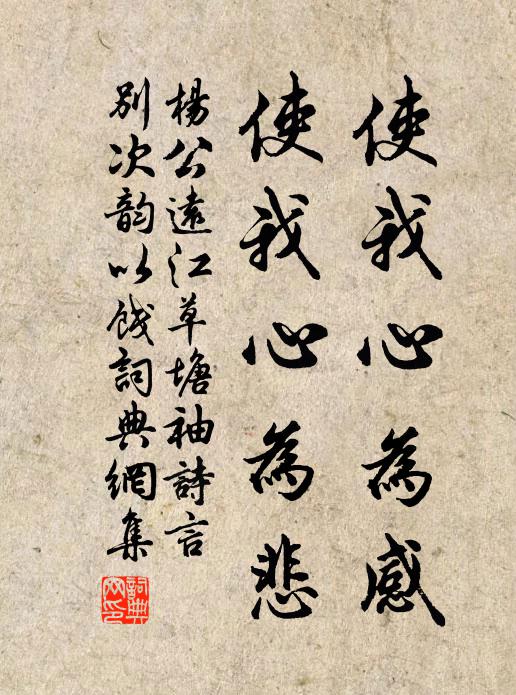 使我心為感
使我心為悲
楊公遠江草塘袖詩言
別次韵以餞詞典網集
詞典网印